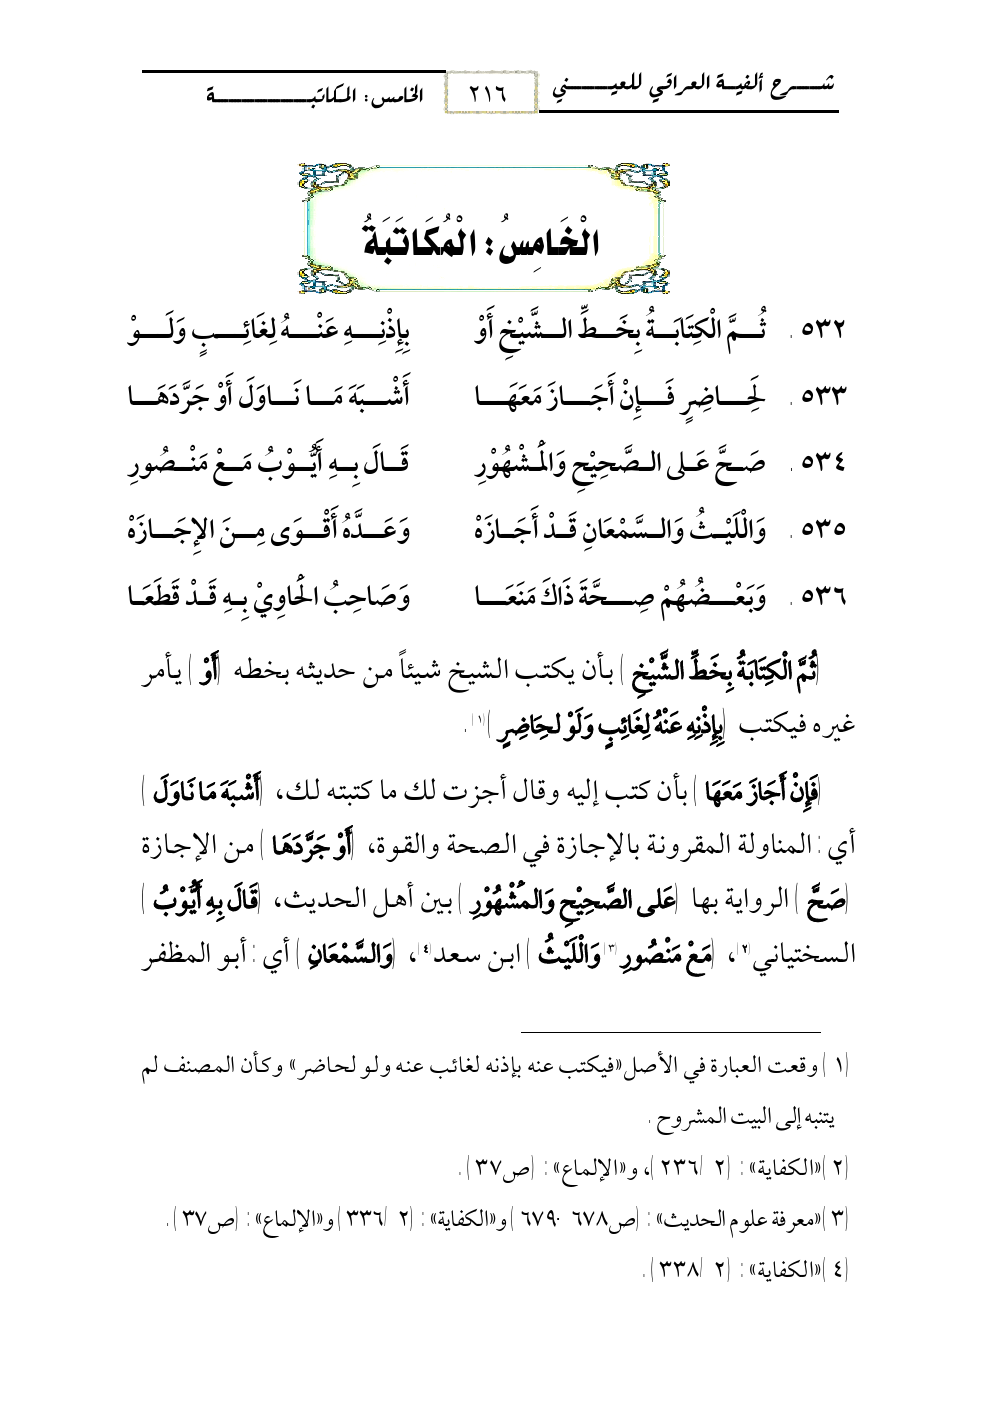 شــــرح ألفيــة العراقي للعيــــــني
٢١٦
الخامس: المكاتبــــــــــــــــة
الْخَامِسُ: الْمُكَاتَبَةُ
٥٣٢. ثُــمَّ الْكِتَابَــةُ بِخَــطِّ الــشَّيْخِ أَوْ بِإِذْنِــهِ عَنْــهُ لِغَائِــبٍ وَلَــوْ
٥٣٣. لِحَــاضِرٍ فَــإِنْ أَجَــازَ مَعَهَــا أَشْــبَهَ مَــا نَــاوَلَ أَوْ جَرَّدَهَــا
٥٣٤. صَــحَّ عَــلى الــصَّحِيْحِ وَالْمَــشْهُوْرِ قَــالَ بِــهِ أَيُّــوْبُ مَــعْ مَنْــصُورِ
٥٣٥. وَالْلَيْــثُ وَالــسَّمْعَانِ قَــدْ أَجَــازَهْ وَعَــدَّهُ أَقْــوَى مِــنَ الإِجَــازَهْ
٥٣٦. وَبَعْــضُهُمْ صِــحَّةَ ذَاكَ مَنَعَــا وَصَاحِبُ الْحَاوِيْ بِــهِ قَــدْ قَطَعَــا
(ثُمَّ الْكِتَابَةُ بِخَطِّ الشَّيْخِ) بأن يكتب الشيخ شيئاً من حديثه بخطه (أَوْ) يأمر
غيره فيكتب (بِإِذْنِهِ عَنْهُ لِغَائِبٍ وَلَوْ لحَاضِرٍ)(١).
(فَإِنْ أَجَازَ مَعَهَا) بأن كتب إليه وقال أجزت لك ما كتبته لك، (أَشْبَهَ مَا نَاوَلَ)
أي: المناولة المقرونة بالإجازة في الصحة والقوة، (أَوْ جَرَّدَهَا) من الإجازة
(صَحَّ) الرواية بها (عَلى الصَّحِيْحِ وَالمَشْهُوْرِ) بين أهل الحديث، (قَالَ بِهِ أَيُّوْبُ)
السختياني(٢)، (مَعْ مَنْصُورِ(٣) وَالْلَيْثُ) ابن سعد(٤)، (وَالسَّمْعَانِ) أي: أبو المظفر
(١) وقعت العبارة في الأصل «فيكتب عنه بإذنه لغائب عنه ولو لحاضر» وكأن المصنف لم
يتنبه إلى البيت المشروح.
(٢) «الكفاية»: (٢/ ٢٣٦)، و«الإلماع»: (ص٣٧).
(٣) «معرفة علوم الحديث»: (ص٦٧٨-٦٧٩) و«الكفاية»: (٢/ ٣٣٦) و«الإلماع»: (ص٣٧).
(٤) «الكفاية»: (٢/ ٣٣٨).